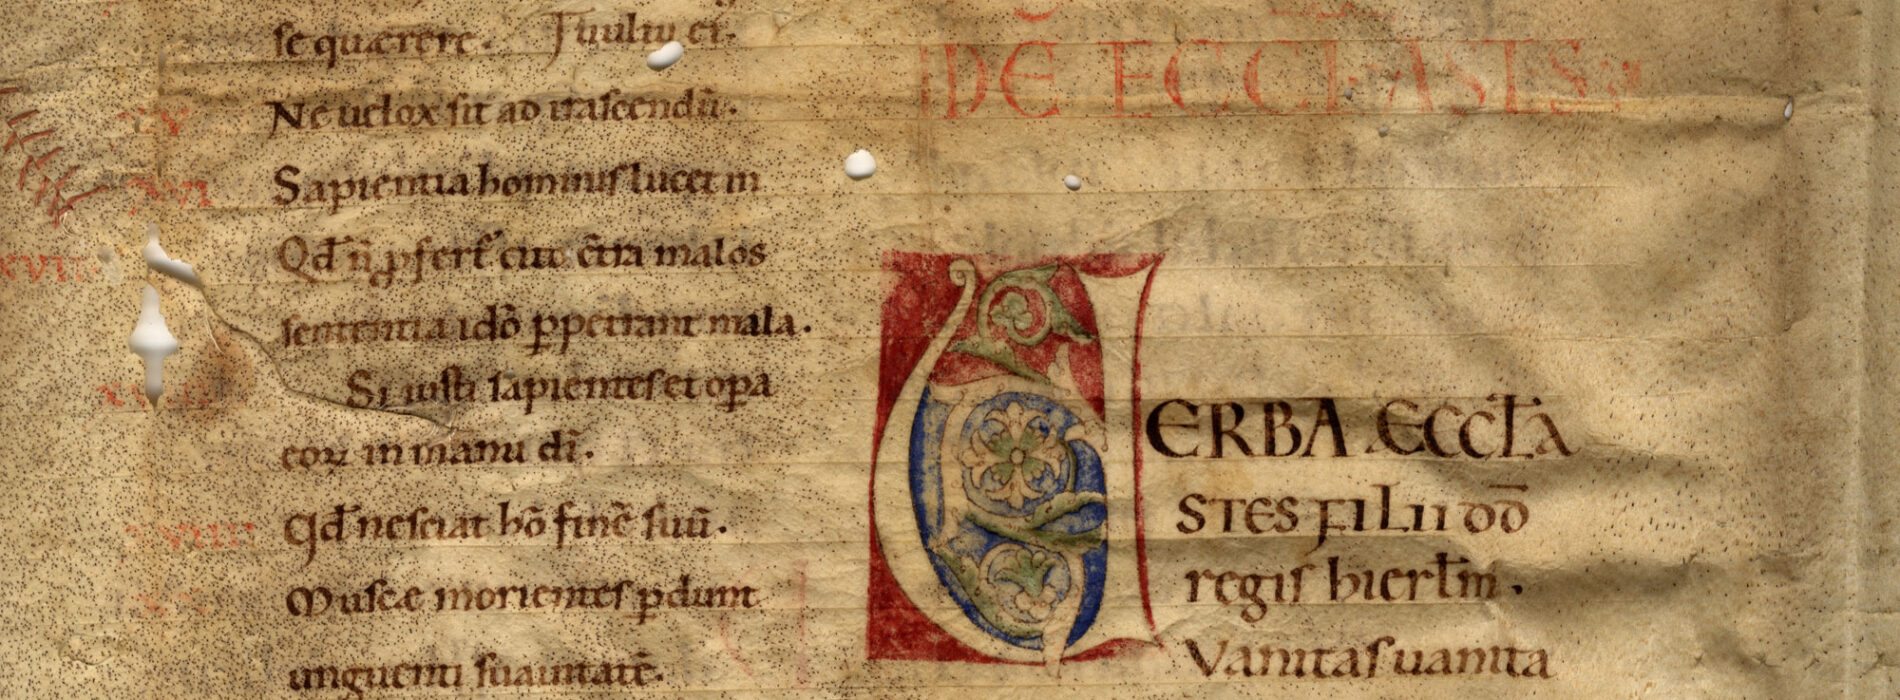 se quærere. Tuultu ei.
XV Ne uelox sit ad irascendū.
XVI Sapientia hominis lucet in
XVII Qđ ñ ꝓfert᷑ cito cт̄ra malos
sententia idō ꝑpetrant mala.
Si iusti sapientes et oꝑa
eoꝝ in manu dī.
Qđ nesciat hō finē suū.
Muscæ morientes ꝑdunt
unguenti suauitatē.
DE ECCLASTS
VERBA ÆCCĿA
STES FILII DD̄
regis hierłm.
Vanitas uanita